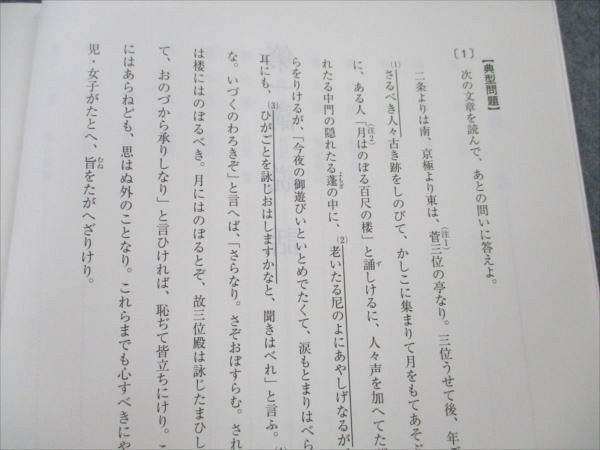 【典型問題】
〔1〕 次の文章を読んで、あとの問いに答えよ。
二条よりは南、京極より東は、菅三位の亭なり。三位うせて後、年ご
(注1)
さるべき人々古き跡をしのびて、かしこに集まりて月をもてあそぶ
(1)
に、ある人「月はのぼる百尺の楼」と誦しけるに、人々声を加へてた
(注2)
ず
れたる中門の隠れたる蓬の中に、老いたる尼のよにあやしげなるが、
よもぎ
(2)
らをりけるが、「今夜の御遊びいといとめでたくて、涙もとまりはべら
耳にも、ひがごとを詠じおはしますかなと、聞きはべれ」と言ふ。
(3)
な。いづくのわろきぞ」と言へば、「さらなり。さぞおぼすらむ。され
は楼にはのぼるべき。月にはのぼるとぞ、故三位殿は詠じたまひし
て、おのづから承りしなり」と言ひければ、恥ぢて皆立ちにけり。こ
にはあらねども、思はぬ外のことなり。これらまでも心すべきにや
児・女子がたとへ、旨をたがへざりけり。
むね